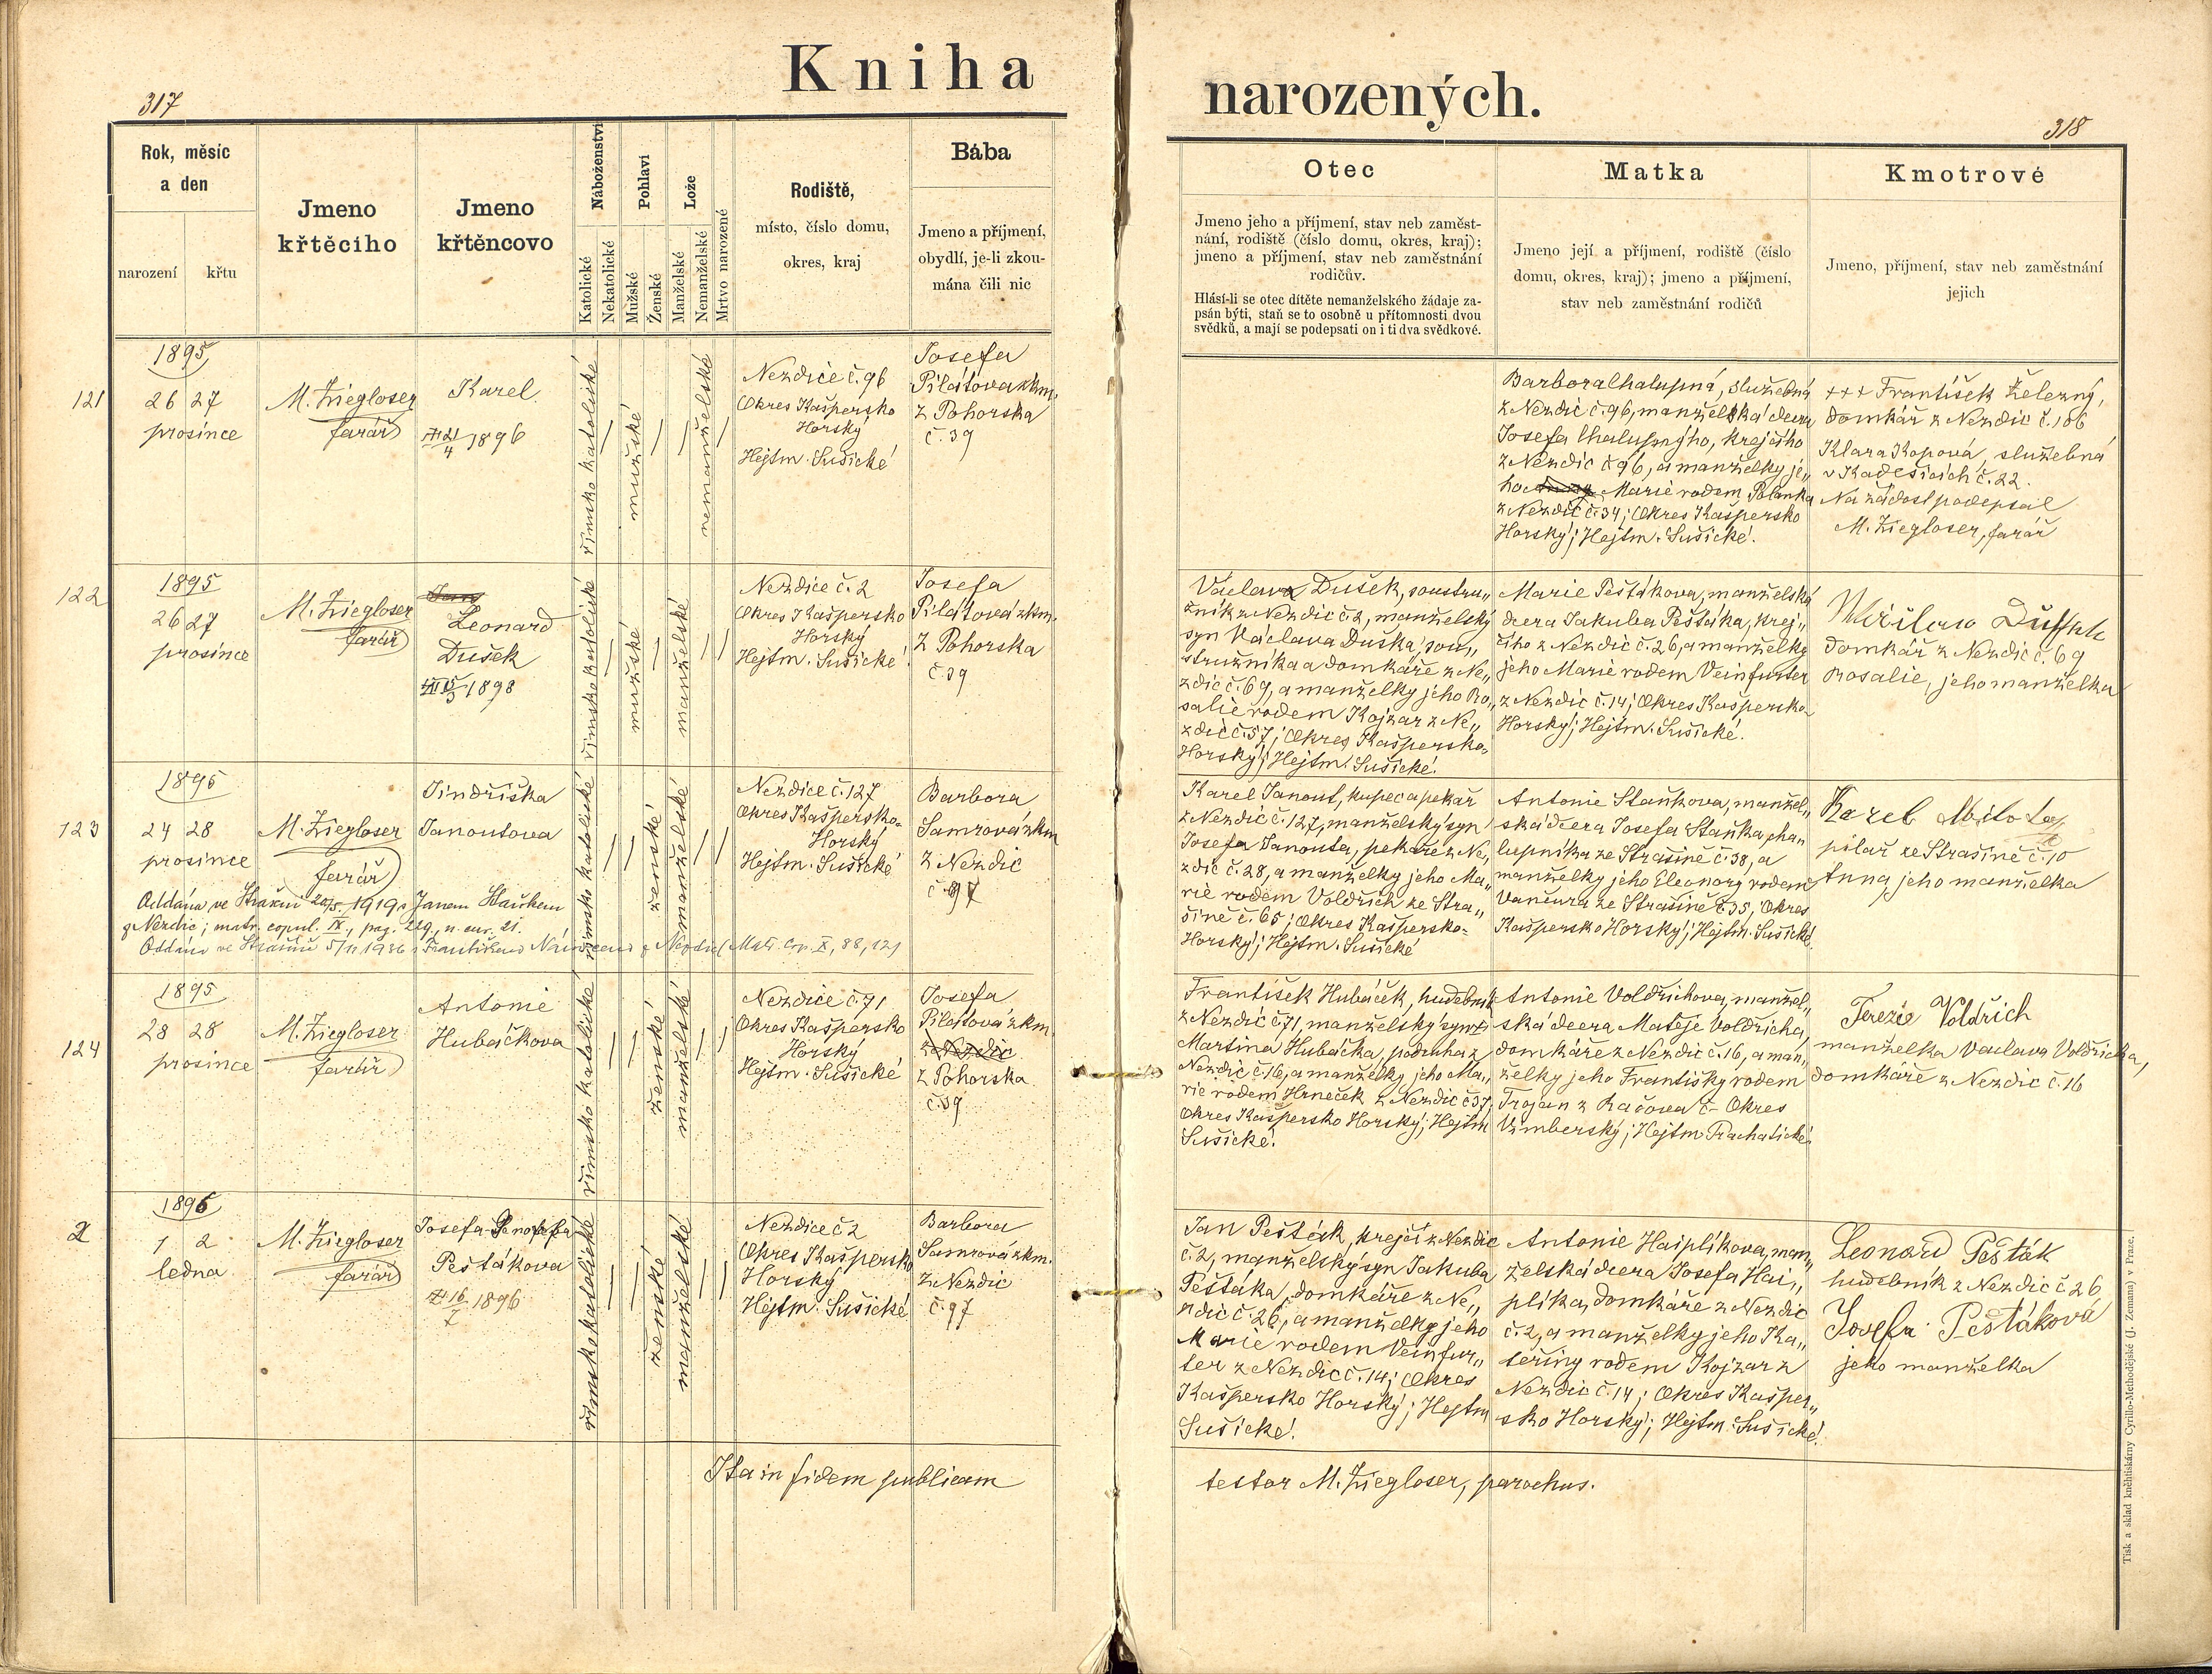 Kniha
narozených.
317
318
Rok, měsíc
a den
narození
křtu
Jmeno
křtěcího
Jmeno
křtěncovo
Náboženství
Katolické
Nekatolické
Pohlaví
Mužské
Ženské
Lože
Manželské
Nemanželské
Mrtvo narozené
Rodiště,
místo, číslo domu,
okres, kraj
Bába
Jmeno a příjmení,
obydlí, je-li zkou-
mána čili nic
Otec
Jmeno jeho a příjmení, stav neb zaměst-
nání, rodiště (číslo domu, okres, kraj);
jmeno a příjmení, stav neb zaměstnání
rodičův.
Hlásí-li se otec dítěte nemanželského žádaje za-
psán býti, staň se to osobně u přítomnosti dvou
svědků, a mají se podepsati on i ti dva svědkové.
Matka
Jmeno její a příjmení, rodiště (číslo
domu, okres, kraj); jmeno a příjmení,
stav neb zaměstnání rodičů
Kmotrové
Jmeno, příjmení, stav neb zaměstnání
jejich
121
1895
26 27
prosince
M. Ziegloser
farář
Karel
1896
římsko katolické
mužské
nemanželské
Nezdice č. 96
Okres Kašpersko
Horský
Hejtm. Sušické
Josefa
Pilátová zkm.
z Pohorska
č. 39
Barbora Chalupná, služebná
z Nezdic č. 96, manželská dcera
Josefa Chalupného, krejčího
z Nezdic č 96, a manželky je„
ho Marie rodem Polanka
z Nezdic č. 34; Okres Kašpersko
Horský; Hejtm. Sušické.
+++ František Železný,
domkář z Nezdic č. 106
Klara Kopová, služebná
v Kadešicích č. 22.
Na žádost podepsal
M. Ziegloser, farář
122
1895
26 27
prosince
M. Ziegloser
farář
Leonard
Dušek
1898
římsko katolické
mužské
manželské
Nezdice č. 2
Okres Kašpersko
Horský
Hejtm. Sušické
Josefa
Pilátová zkm.
z Pohorska
č. 39
Václav Dušek, soustru„
žník z Nezdic č. 2, manželský
syn Václava Duška, sou„
stružníka a domkáře z Ne„
zdic č. 69, a manželky jeho Ro„
salie rodem Kojzar z Ne„
zdic č. 57; Okres Kašpersko-
Horský; Hejtm. Sušické.
Marie Peštákova, manželská
dcera Jakuba Peštáka, krej„
čího z Nezdic č. 26, a manželky
jeho Marie rodem Veinfurter
z Nezdic č. 14; Okres Kašpersko
Horský; Hejtm. Sušické.
domkář z Nezdic č. 69
Rosalie, jeho manželka
123
1895
24 28
prosince
M. Ziegloser
farář
Jindřiška
Janoutova
římsko katolické
ženské
manželské
Nezdice č. 127
Okres Kašpersko-
Horský
Hejtm. Sušické
Barbora
Samrová zkm
z Nezdic
č. 97
Karel Janout, kupec a pekař
z Nezdic č. 127, manželský syn
Josefa Janouta, pekaře z Ne„
zdic č. 28, a manželky jeho Ma„
rie rodem Voldřich ze Stra„
šině č. 65; Okres Kašpersko-
Horský; Hejtm. Sušické
Antonie Staňkova, manžel„
ská dcera Josefa Staňka, cha„
lupníka ze Strašině č. 38, a
manželky jeho Eleonory rodem
Vančura ze Strašině č. 35; Okres
Kašpersko Horský; Hejtm. Sušické
Karel
pilař ze Strašině č. 10
Anna, jeho manželka
Oddána ve Strašíni 20/5 1919 s Janem Staňkem
z Nezdic; matr. copul. IX, pag. 229, n. cur. 21.
Oddána ve Strašíni 5/11 1936 s Františkem z Nezdic Matr. Cop. X, 88, 121
124
1895
28 28
prosince
M. Ziegloser
farář
Antonie
Hubáčkova
římsko katolické
ženské
manželské
Nezdice č. 71
Okres Kašpersko
Horský
Hejtm. Sušické
Josefa
Pilátová zkm
z Nezdic
z Pohorska
č. 39
František Hubáček, hudebník
z Nezdic č. 71, manželský syn
Martina Hubáčka, podruha z
Nezdic č. 16, a manželky jeho Ma„
rie rodem Hrneček z Nezdic č 37;
Okres Kašpersko Horský; Hejtm
Sušické.
Antonie Voldřichova, manžel„
ská dcera Matěje Voldřicha,
domkáře z Nezdic č. 16, a man„
želky jeho Františky rodem
Trojan z Račova č - Okres
Vimberský; Hejtm. Prachatické
Terezie Voldřich
manželka Vaclava Voldřicha,
domkáře z Nezdic č. 16
2
1896
1 2
ledna
M. Ziegloser
farář
Josefa
Peštákova
1896
římsko katolické
ženské
manželské
Nezdice č 2
Okres Kašpersko
Horský
Hejtm. Sušické
Barbora
Samrová zkm.
z Nezdic
č. 97
Jan Pešták, krejčí z Nezdic
č. 2, manželský syn Jakuba
Peštáka, domkáře z Ne„
zdic č. 26, a manželky jeho
Marie rodem Veinfur„
ter z Nezdic č. 14; Okres
Kašpersko Horský; Hejtm
Sušické.
Antonie Haiplíkova, man„
želská dcera Josefa Hai„
plíka, domkáře z Nezdic
č. 2, a manželky jeho Ka„
teřiny rodem Kojzar z
Nezdic č. 14; Okres Kašper„
sko Horský; Hejtm. Sušické.
Leonard Pešták
hudebník z Nezdic č 26,
Josefa Peštáková
jeho manželka
Ita in fidem publicam
testor M. Ziegloser, parochus.
Tisk a sklad knihtiskárny Cyrillo-Methodějské (J. Zeman) v Praze.